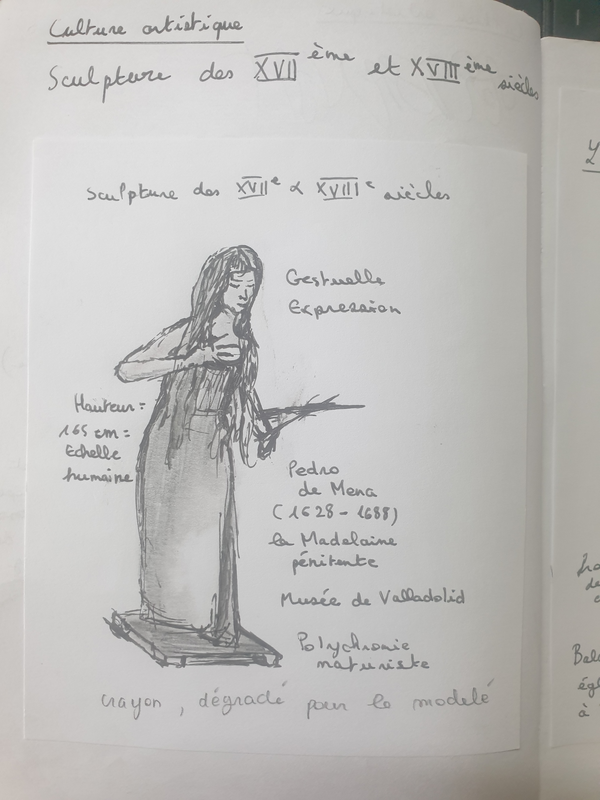 Culture artistique
Sculpture des XVII ème et XVIII ème siècles
Sculpture des XVII e & XVIII e siècles
Gestuelle
Expression
Hauteur =
165 cm =
Echelle
humaine
Pedro
de Mena
(1628 - 1688)
la Madelaine
pénitente
Musée de Valladolid
Polychromie
naturiste
crayon, dégradé pour le modelé
égl
à